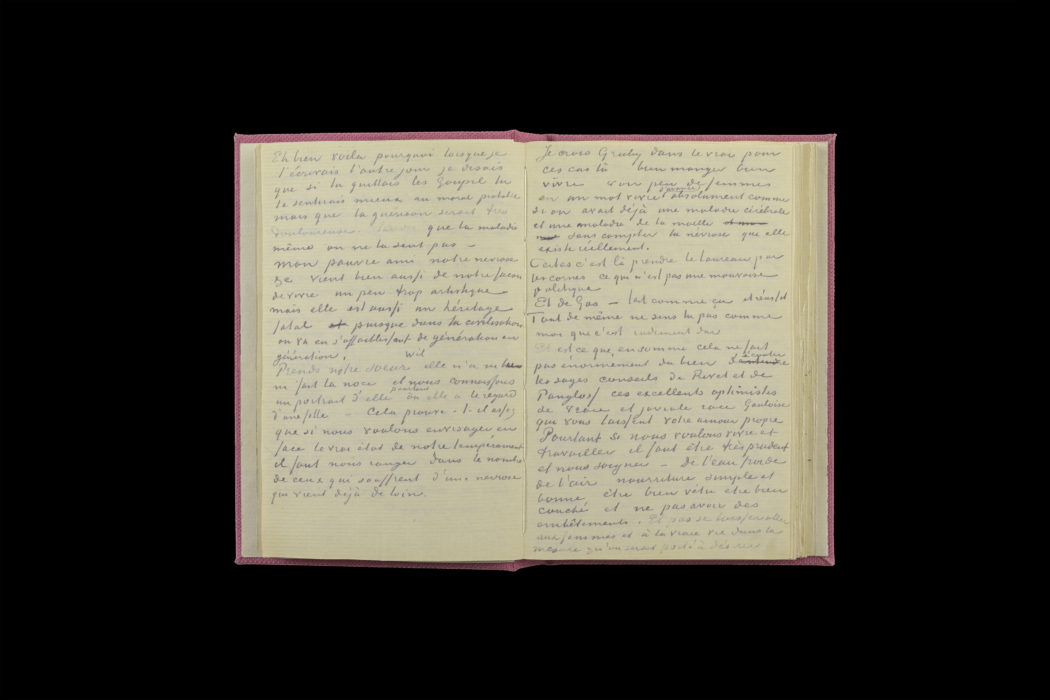 Eh bien voila pourquoi lorsque je
t'écrivais l'autre jour je disais
que si tu quittais les Goupil tu
te sentirais mieux au moral probable
mais que la guerison serait très
douloureuse. Tandis que la maladie
même on ne la sent pas –
Mon pauvre ami notre nevrose
&c vient bien aussi de notre facon
de vivre un peu trop artistique –
mais elle est aussi un héritage
fatal puisque dans la civilisation
on va en s'affaiblissant de génération en
génération.
Prends notre soeur Wil elle n'a ni bu
ni fait la noce et nous connaissons
pourtant
un portrait d'elle où elle a le regard
d'une folle – Cela prouve-t-il assez
que si nous voulons envisager en
face le vrai état de notre tempérament
il faut nous ranger dans le nombre
de ceux qui souffrent d'une nevrose
qui vient déjà de loin.
Je crois Gruby dans le vrai pour
ces cas là bien manger bien
vivre voir peu de femmes
en un mot vivre d'avance absolument comme
si on avait déjà une maladie cérébrale
et une maladie de la moelle
sans compter la nevrose que elle
existe réellement.
Certes c'est là prendre le taureau par
les cornes ce qui n'est pas une mauvaise
politique
Et de Gas – fait comme ça et réussit
Tout de même ne sens tu pas comme
moi que c'est rudement dur
Et est ce que, en somme cela ne fait
pas énormément du bien d'écouter
les sages conseils de Rivet et de
Pangloss ces excellents optimistes
de vraie et joviale race Gauloise
qui vous laissent votre amour propre
Pourtant si nous voulons vivre et
travailler il faut être très prudent
et nous soigner – de l'eau froide
de l'air nourriture simple et
bonne être bien vêtu etre bien
couché et ne pas avoir des
embêtements. Et pas se laisser aller
aux femmes et à la vraie vie dans la
mesure qu'on serait porté à désirer